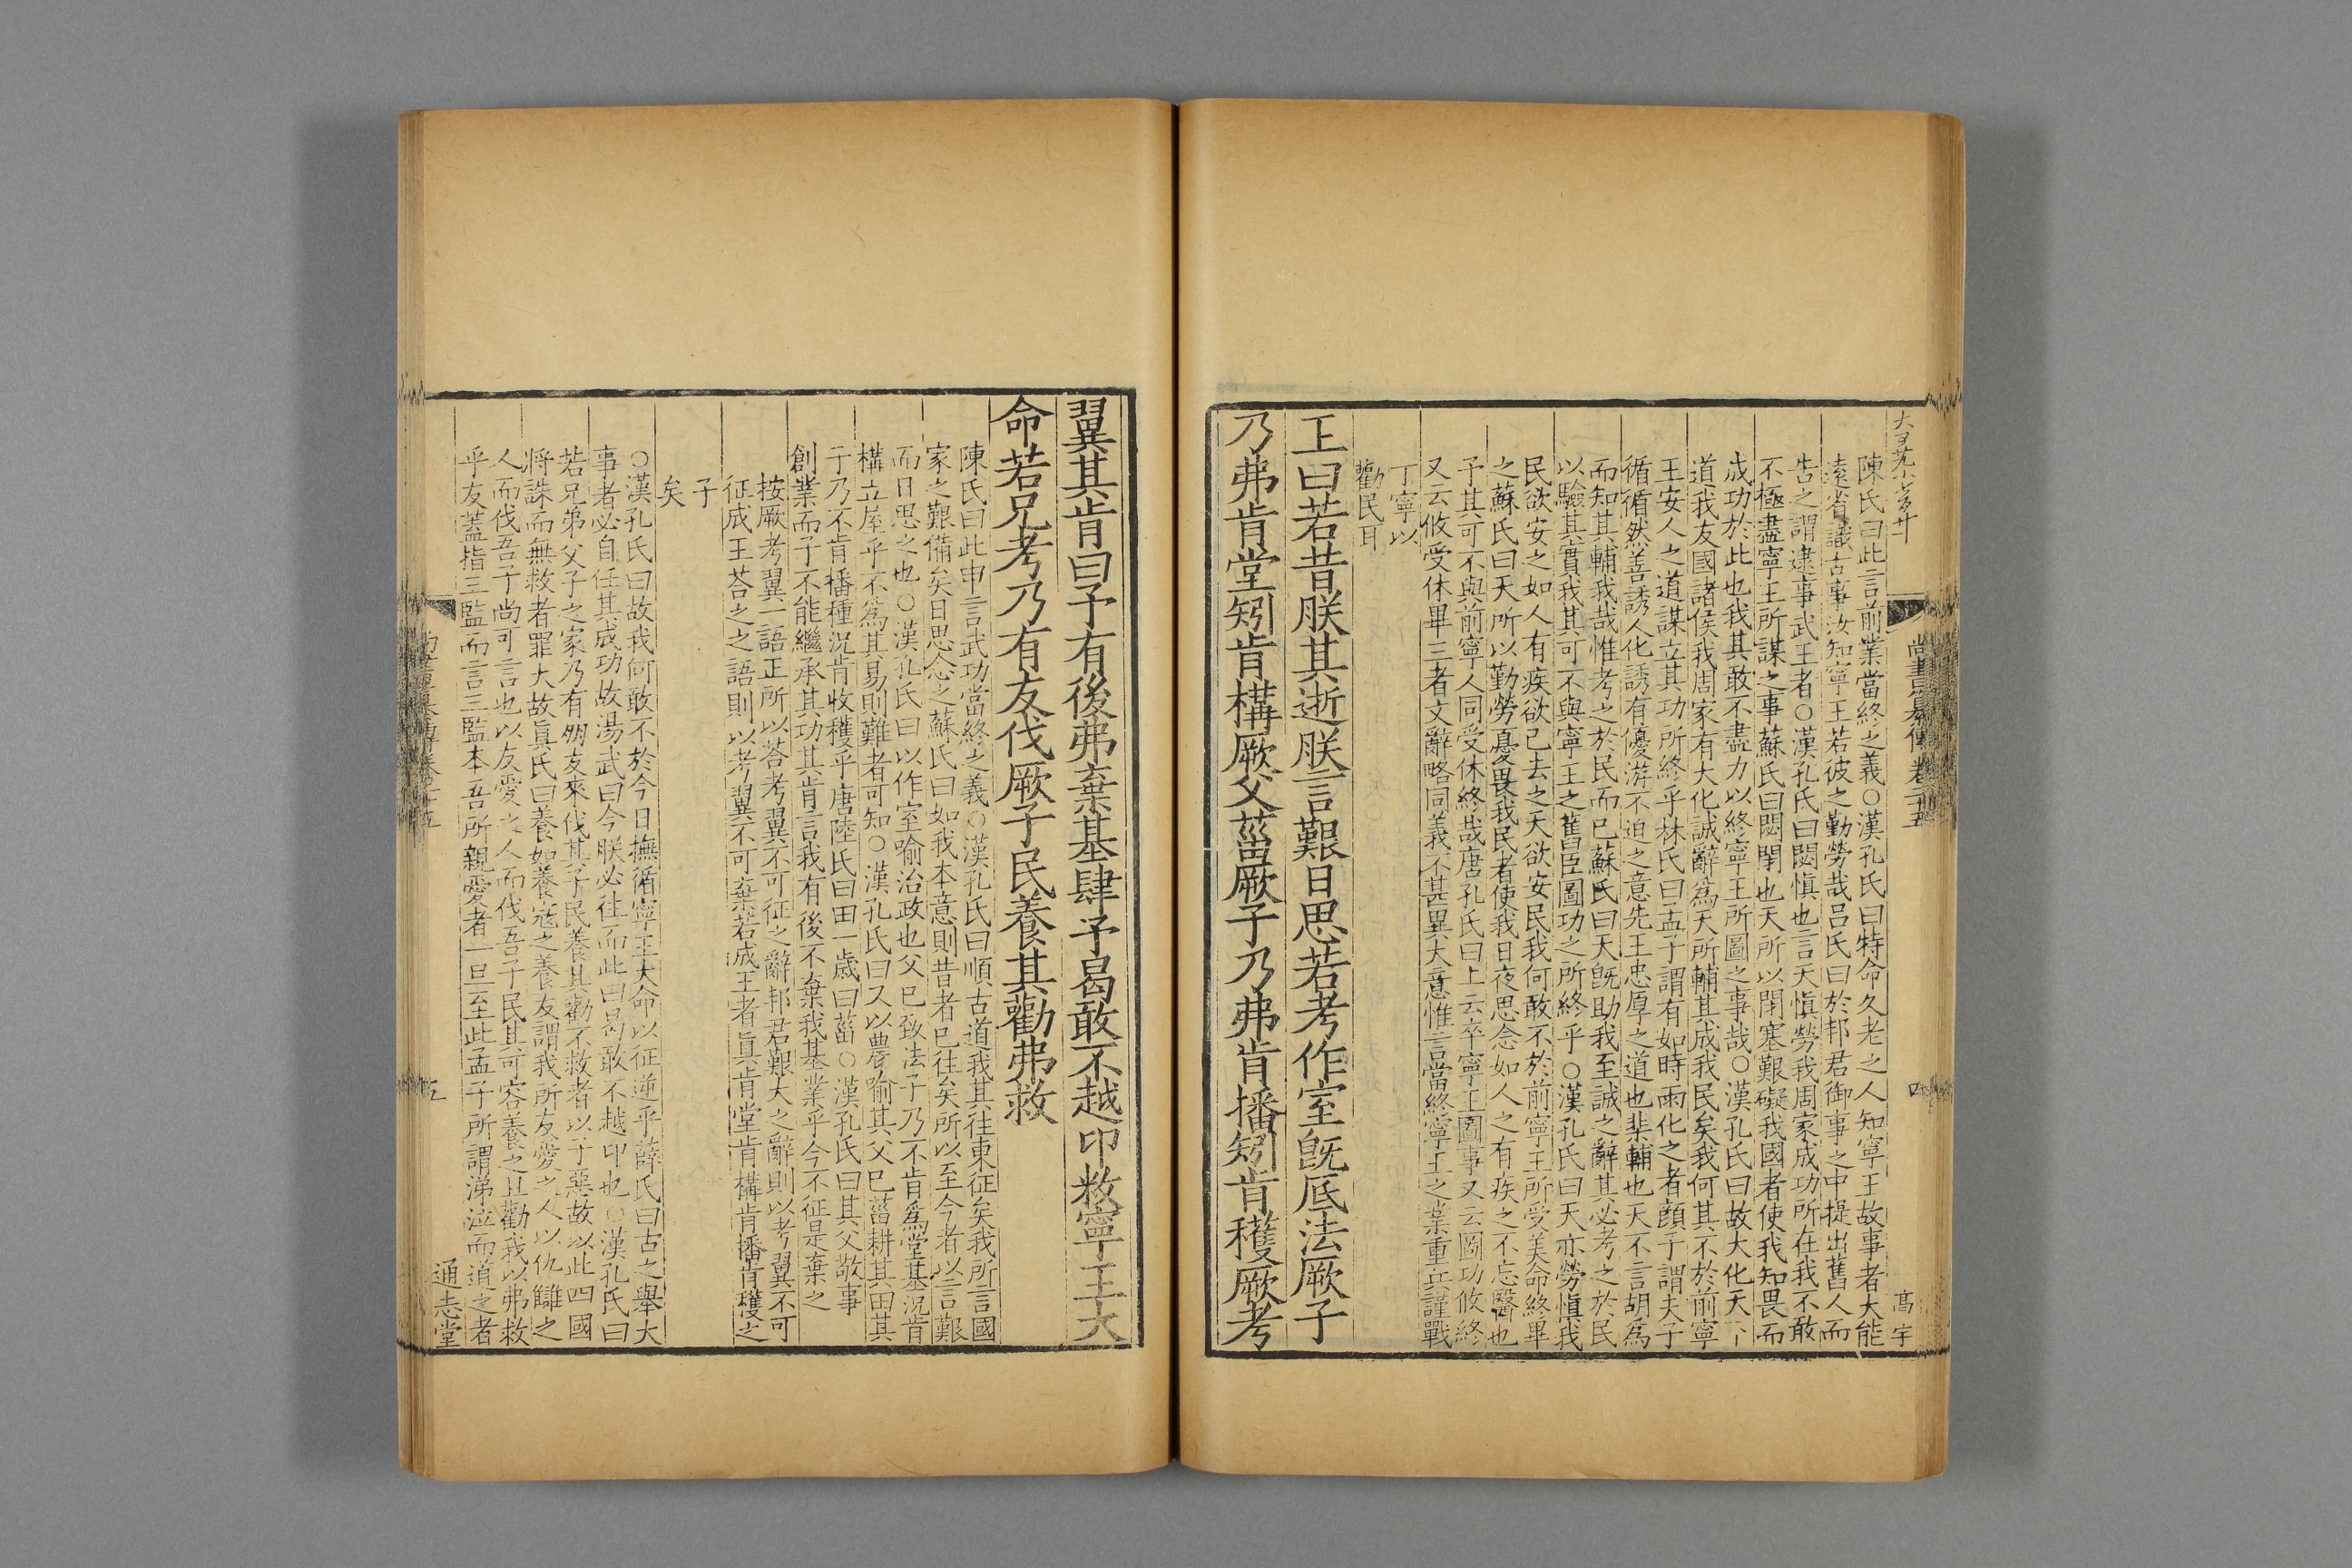 陳氏曰此言前業當終之義○漢孔氏曰特命久老之人知寧王故事者大能
遠省識古事汝知寧王若彼之勤勞哉呂氏曰於邦君御事之中提出舊人而
告之謂逮事武王者○漢孔氏曰閟慎也言天慎勞我周家成功所在我不敢
不極盡寧王所謀之事蘇氏曰閟閉也天所以閉塞艱礙我國者使我知畏而
成功於此也我其敢不盡力以終寧王所圖之事哉○漢孔氏曰故大化天下
道我友國諸侯我周家有大化誠辭為天所輔其成我民矣我何其不於前寧
王安人之道謀立其功所終乎林氏曰孟子謂有如時雨化之者顏子謂夫子
循循然善誘人化誘有優游不迫之意先王忠厚之道也棐輔也天不言胡為
而知其輔我哉惟考之於民而已蘇氏曰天旣助我至誠之辭其必考之於民
以驗其實我其可不與寧王之舊臣圖功之所終乎○漢孔氏曰天亦勞慎我
民欲安之如人有疾欲已去之天欲安民我何敢不於前寧王所受美命終畢
之蘇氏曰天所以勤勞憂畏我民者使我日夜思念如人之有疾之不忘醫也
予其可不與前寧人同受休終哉唐孔氏曰上云卒寧王圖事又云圖功攸終
又云攸受休畢三者文辭略同義不甚異大意惟言當終寧王之業重兵謹戰
丁寧以
勸民耳
王曰若昔朕其逝朕言艱日思若考作室旣厎法厥子
乃弗肯堂矧肯構厥父菑厥子乃弗肯播矧肯穫厥考
尚書纂傳卷二十五
四
高宇
翼其肯曰予有後弗棄基肆予曷敢不越卬敉寧王大
命若兄考乃有友伐厥子民養其勸弗救
陳氏曰此申言武功當終之義○漢孔氏曰順古道我其往東征矣我所言國
家之艱備矣日思念之蘇氏曰如我本意則昔者已往矣所以至今者以言艱
而日思之也○漢孔氏曰以作室喻治政也父已致法子乃不肯為堂基況肯
構立屋乎不為其易則難者可知○漢孔氏曰又以農喻其父已菑耕其田其
子乃不肯播種況肯收穫乎唐陸氏曰田一歲曰菑○漢孔氏曰其父敬事
創業而子不能繼承其功其肯言我有後不棄我基業乎今不征是棄之
按厥考翼一語正所以荅考翼不可征之辭邦君艱大之辭則以考翼不可
征成王荅之之語則以考翼不可棄若成王者眞肯堂肯構肯播肯穫之
子
矣
○漢孔氏曰故我何敢不於今日撫循寧王大命以征逆乎薛氏曰古之舉大
事者必自任其成功故湯武曰今朕必往而此曰曷敢不越卬也○漢孔氏曰
若兄弟父子之家乃有朋友來伐其子民養其勸不救者以子惡故以此四國
將誅而無救者罪大故眞氏曰養如養寇之養友謂我所友愛之人以仇讎之
人而伐吾子尚可言也以友愛之人而伐吾子民其可容養之且勸我以弗救
乎友蓋指三監而言三監本吾所親愛者一旦至此孟子所謂涕泣而道之者
五
通志堂